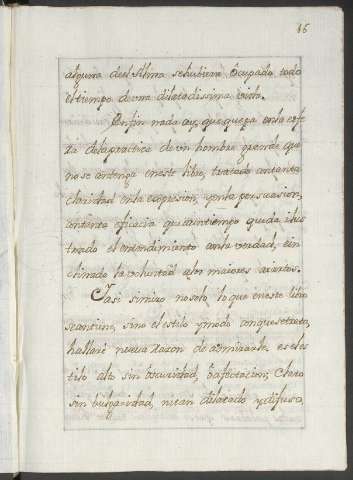 16
alguna de el Alma se hubiera Ocupado todo
el tiempo de vna dilatadissima vida.
En fin nada ay, que quepa en la esfe
ra de la practica de vn hombre grande que
no se contenga en este libro, tratado con tanta
claridad en la expresion, y en la persuasion,
con tanta eficacia que a vn tiempo queda ilus
trado el entendimiento con la verdad, e in
clinado la voluntad a los maiores aciertos.
I asi si miro no solo, lo que en este libro
se contiene, sino el estilo y modo con que se trata,
hallaré nueva razon de admirarle. es el es
tilo alto sin obscuridad, o afectacion; Claro
sin bulgaridad, ni tan dilatado y difuso,